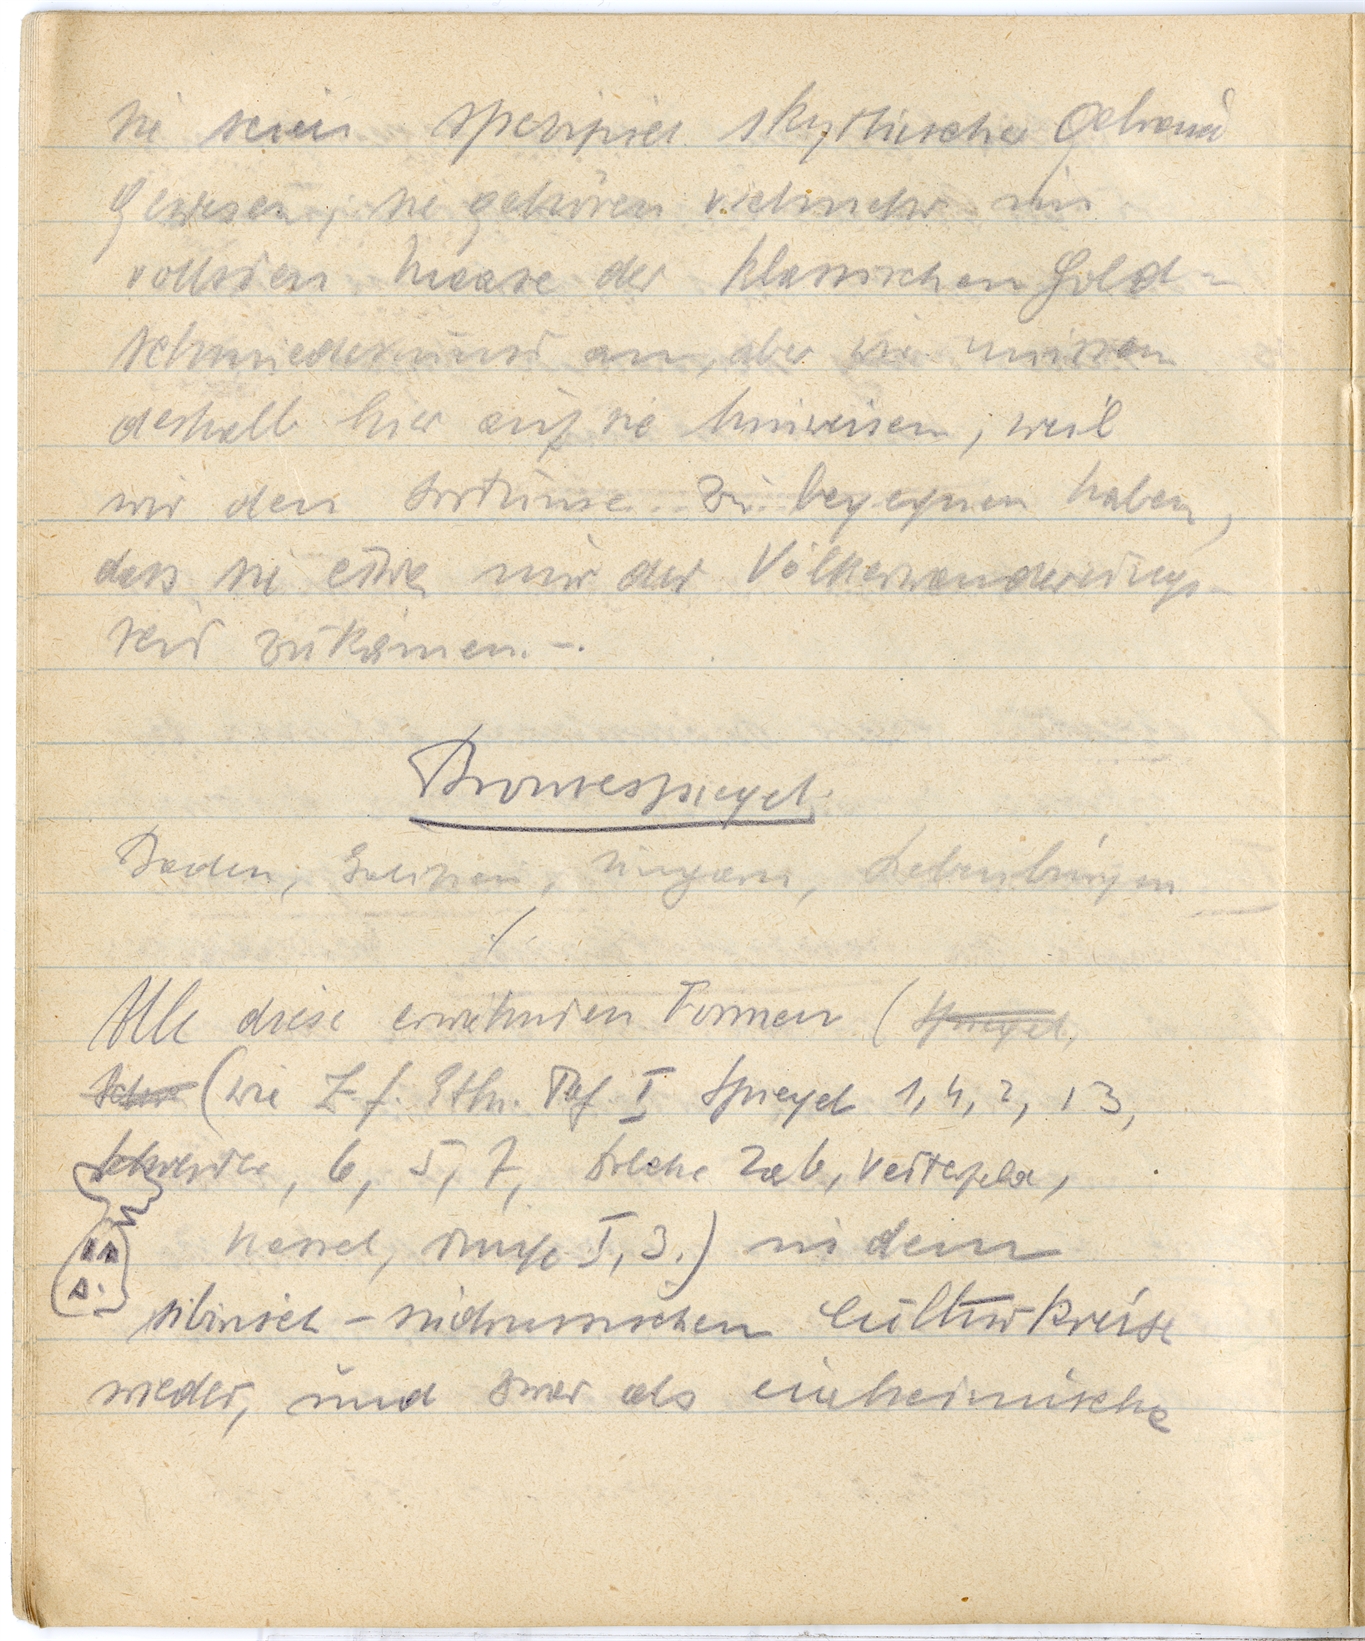 sie seien spezifisch skythischer Gebrauch
gewesen, sie gehören vielmehr im
vollsten Maase der klassischen Gold-
schmiedekunst an, aber wir müssen
deshalb hier auf sie hinweisen, weil
wir dem Irrtume zu begegnen haben,
dass sie etwa nur der Völkerwanderungs-
zeit zukämen. –
Bronzespiegel.
Baden, Galizien, Ungarn, Siebenbürgen
Alle diese erwähnten Formen (Spiegel,
(wie Z. f. Ethn. Taf I Spiegel 1, 4, 2, 13,
Schwerter, 6, 5, 7, Dolche 2ab, Vettersfelde,
Kessel, I, 3.) in dem
sibirisch-südrussischen Culturkreise
wieder, und zwar als einheimische